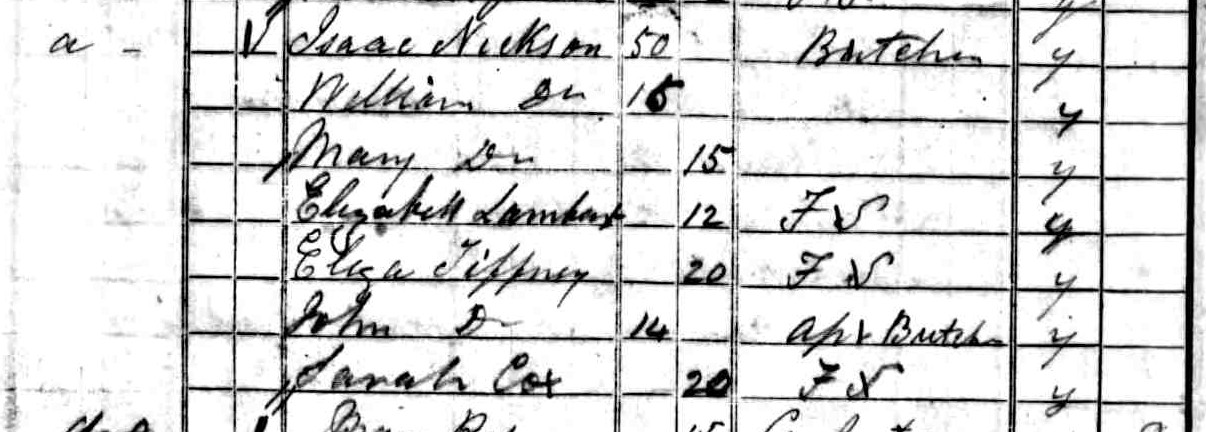 a - Isaac Nickson 50 Butcher y
William Do 15 y
Mary Do 15 y
Elizabeth Lambert 12 F S y
Eliza Tiffney 20 F S y
John Do 14 Apt Butcher y
Sarah Cox 20 F S y